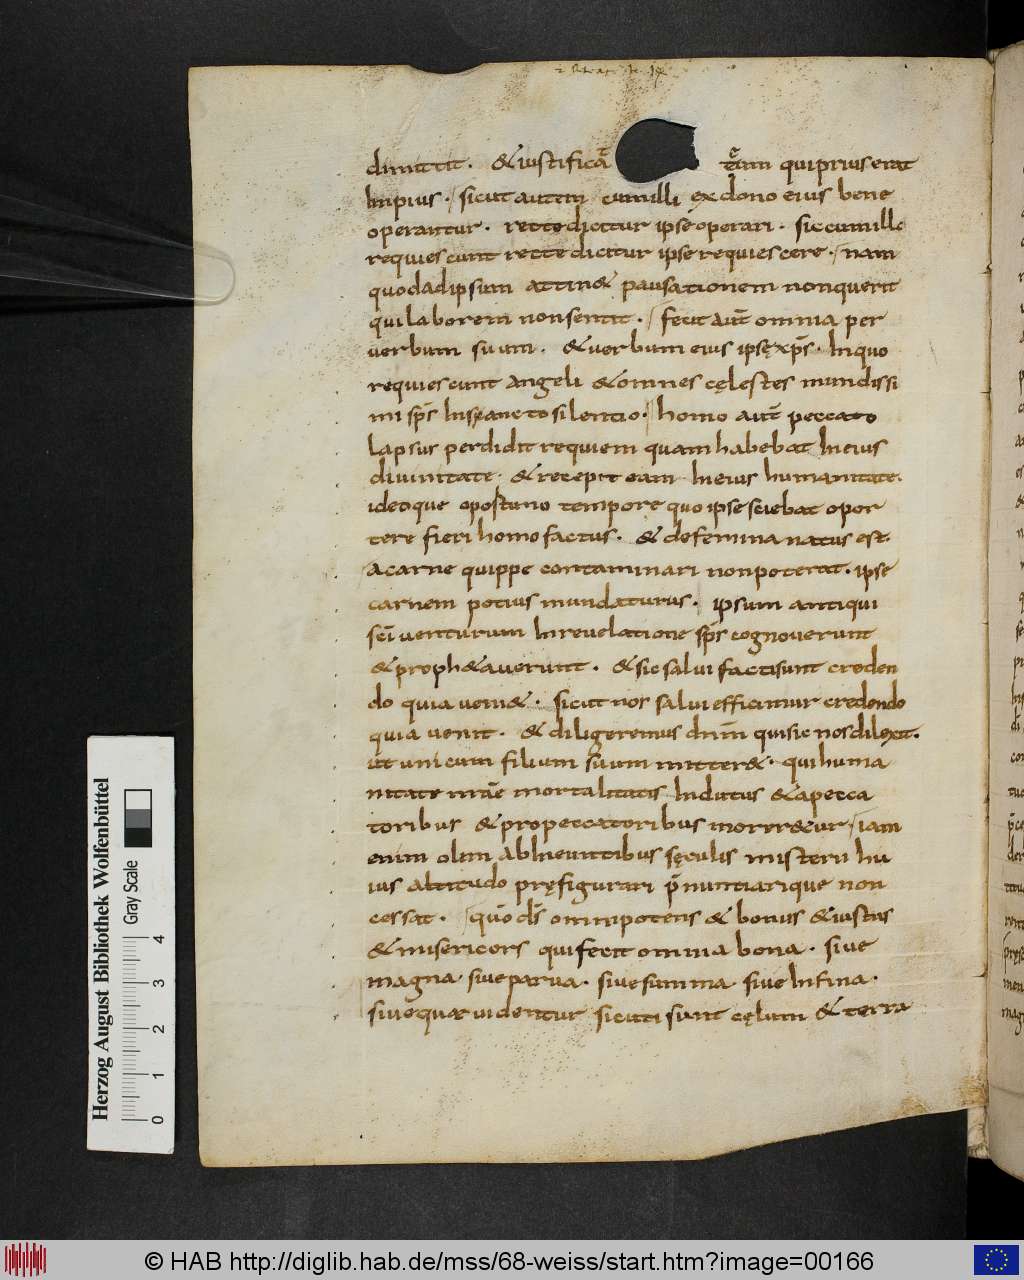 dimittit. & iustificā tē̄am qui prius erat
Impius. sicut autem cum illi ex dono eius bene
operantur. recte dicitur ipse operari. sic cum illo
requiescunt recte dicitur ipse requiescere. nam
quod ad ipsum attin& pausationem non querit
qui laborem non sentit. fecit aut̄ omnia per
uerbum suum. & uerbum eius ipsę xp̄s. In quo
requiescunt angeli & omnes cęlestes mundissi
mi sp̄s In sancto silentio. homo aut̄ peccato
lapsus perdidit requiem quam habebat In eius
diuinitate. & recepit eam In eius humanitate.
ideoque oportuno tempore quo ipse sciebat opor
tere fieri homo factus. & de femina natus est.
A carne quippe contaminari non poterat. ipse
carnem potius mundaturus. ipsum antiqui
sc̄i uenturum In reuelatione sp̄s cognouerunt
& proph&auerunt. & sic salui facti sunt creden
do quia ueni&. sicut nos salui efficimur credendo
quia uenit. & diligeremus dn̄m qui sic nos dilexit.
ut unicum filium suum mitter&. qui huma
nitate nr̄ae mortalitatis Indutus & a pecca
toribus & pro peccatoribus morer&ur. iam
enim olim ab Ineuntibus sęculis misterii hu
ius altitudo pręfigurari p̄nuntiarique non
cessat. quō ds̄ omnipotens & bonus & iustus
& misericors qui fecit omnia bona. siue
magna siue parua. siue summa siue Infima.
siue quae uidentur sicuti sunt cęlum & terra
Herzog August Bibliothek Wolfenbüttel
Gray Scale
0 1 2 3 4
© HAB http://diglib.hab.de/mss/68-weiss/start.htm?image=00166